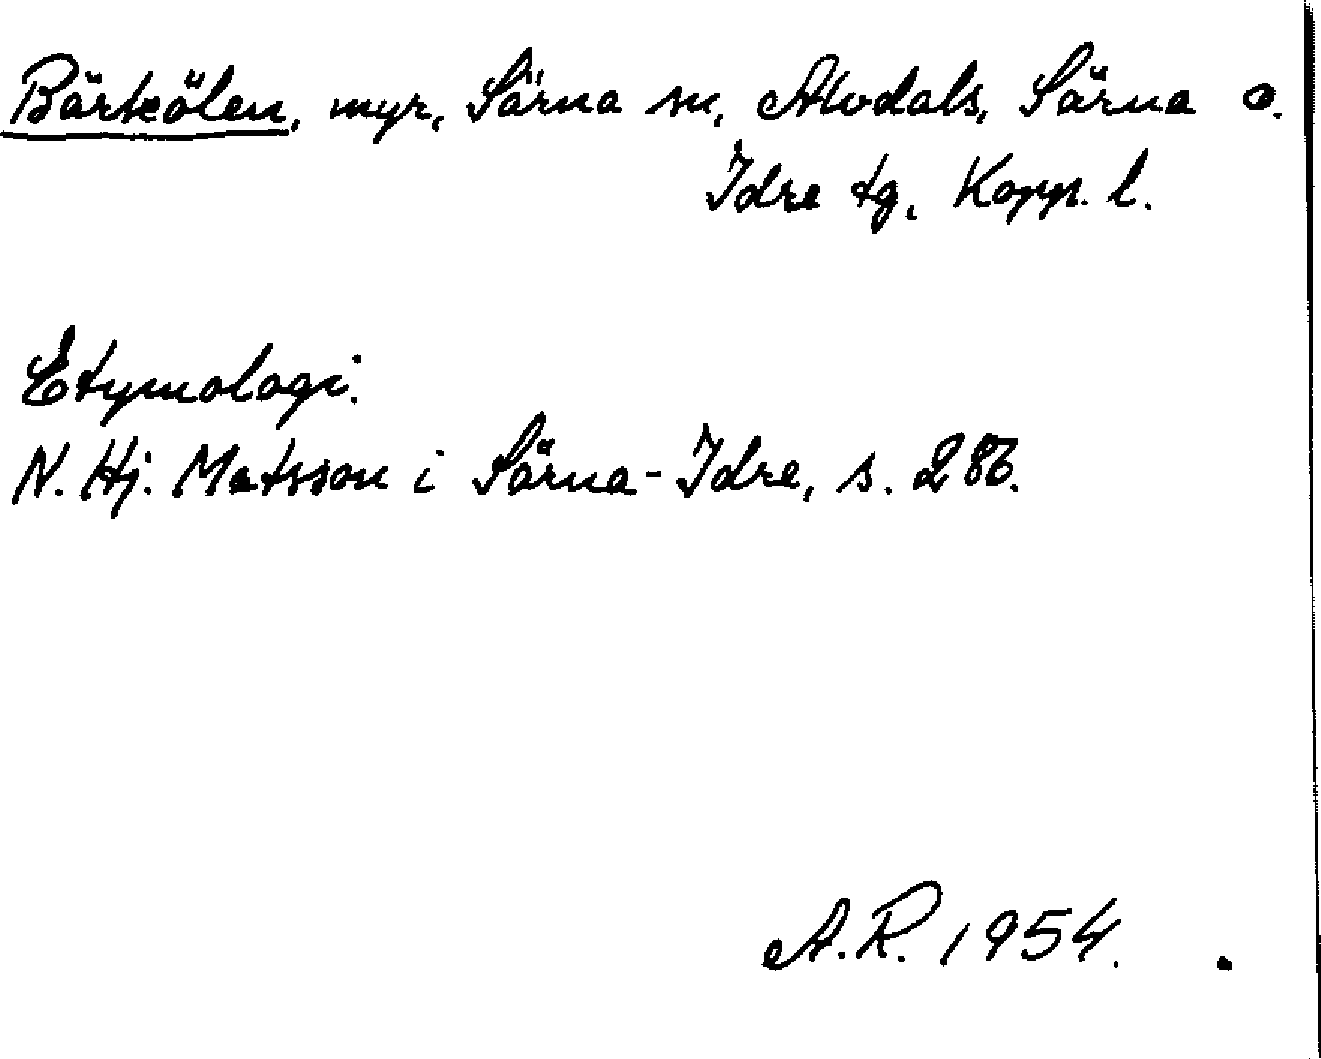 Bärkölen, myr, Särna sn, Älvdals, Särna o.
Idre tg, Kopp. l.
Etymologi.
N. Hj. Matsson i Särna-Idre, s. 286.
A.R. 1954.